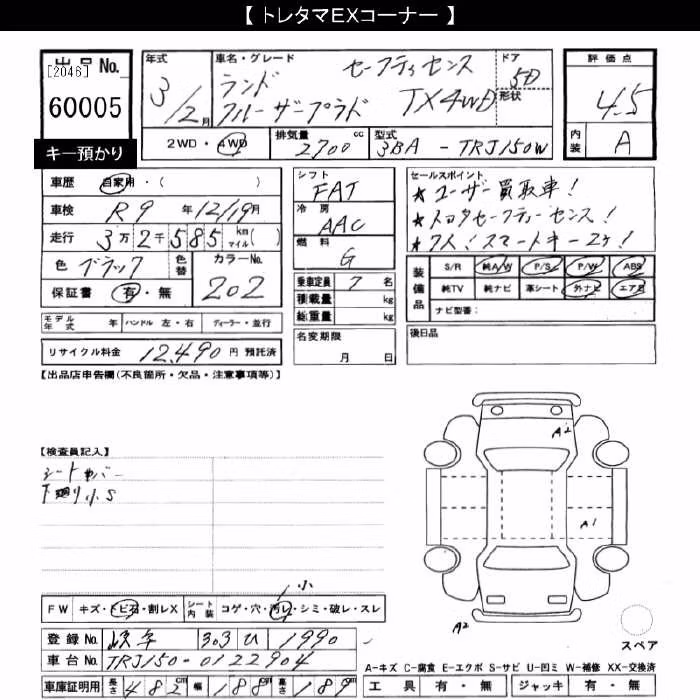 【 トレタマEXコーナー 】
出品No.
[2046]
60005
キー預かり
年式 3/2月
車名・グレード
ランド クルーザープラド
セーフティセンス
TX4WD
ドア 5D
形状
2WD・4WD
排気量 2700 cc
型式 3BA - TRJ150W
評価点
4.5
内装 A
車歴 自家用・( )
車検 R9 年 12/19月
走行 3万2千585 km マイル( )
色 ブラック
色替
カラーNo. 202
保証書 有・無
シフト FAT
冷房 AAC
燃料 G
乗車定員 7 名
積載量 kg
総重量 kg
名変期限
月 日
セールスポイント
★ユーザー買取車!
★トヨタセーフティーセンス!
★7人!スマートキー2ヶ!
装備品
S/R 純A/W P/S P/W ABS
純TV 純ナビ 革シート 外ナビ エアB
ナビ型番:
後日品
モデル年式 年 ハンドル 左・右 ディーラー・並行
リサイクル料金 12,490 円 預託済
【出品店申告欄(不良箇所・欠品・注意事項等)】
【検査員記入】
シートカバー
下廻り小S
A2
A1
A2
小
FW キズ・トビ石・割レX シート内装 コゲ・穴・汚レ・シミ・破レ・スレ
登録No. 岐阜 303 ひ 1990
車台No. TRJ150-0122904
車庫証明用 長さ 482cm 幅 188cm 高さ 189
スペア
A-キズ C-腐食 E-エクボ S-サビ U-凹ミ W-補修 XX-交換済
工具 有・無 ジャッキ 有・無